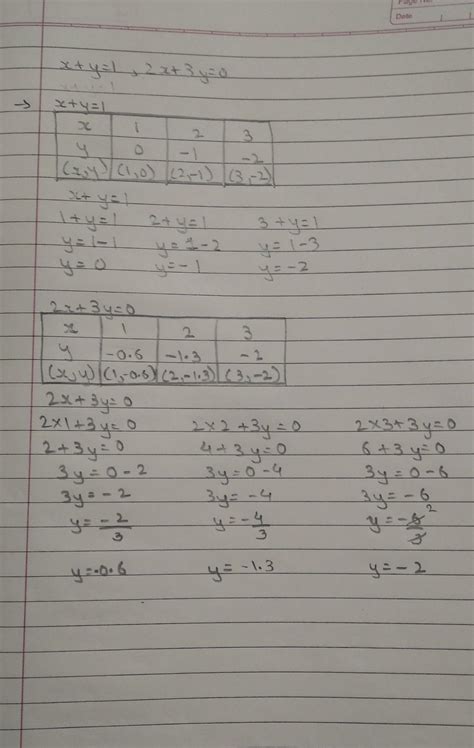 Page No.
Date
x+y=1 , 2x+3y=0
→ x+y=1
x 1 2 3
y 0 -1 -2
(x,y) (1,0) (2,-1) (3,-2)
x+y=1
1+y=1 2+y=1 3+y=1
y=1-1 y=1-2 y=1-3
y=0 y=-1 y=-2
2x+3y=0
x 1 2 3
y -0.6 -1.3 -2
(x,y) (1,-0.6) (2,-1.3) (3,-2)
2x+3y=0
2×1+3y=0 2×2+3y=0 2×3+3y=0
2+3y=0 4+3y=0 6+3y=0
3y=0-2 3y=0-4 3y=0-6
3y=-2 3y=-4 3y=-6
y=-2/3 y=-4/3 y=-6/3 2
y=-0.6 y=-1.3 y=-2